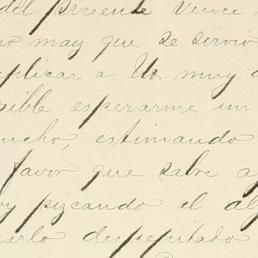 del presente vence
no may que se sirvio
plicar a U. muy
sible esperarme un
ucho, estimando
favor que sabre a
oy pizcando el al
uerlo despepitado